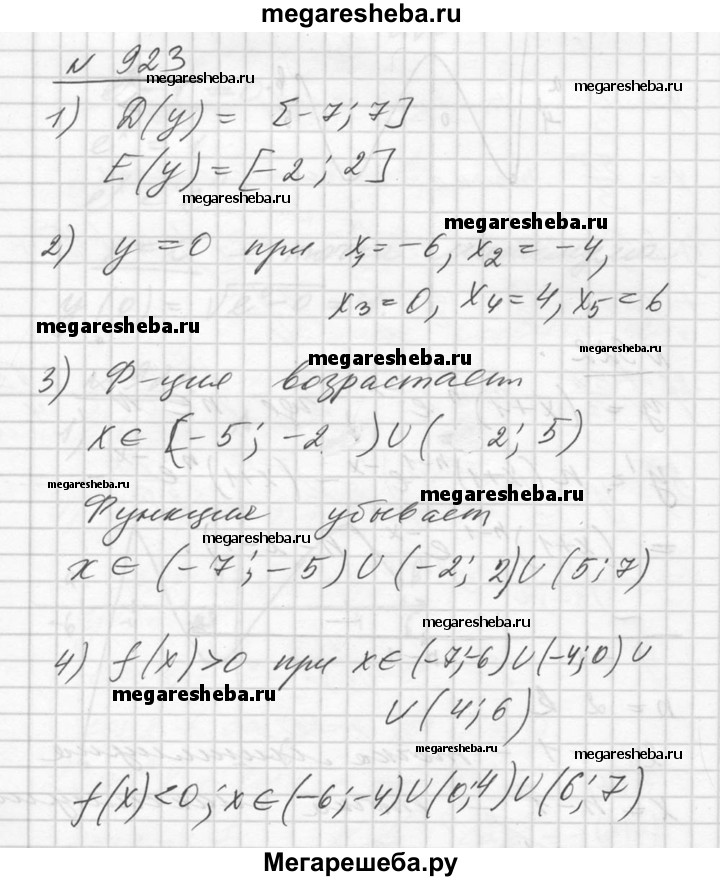 megaresheba.ru
№ 923
megaresheba.ru
megaresheba.ru
1) D(y) = [-7; 7]
E(y) = [-2; 2]
megaresheba.ru
megaresheba.ru
2) y = 0 при x₁ = -6, x₂ = -4,
x₃ = 0, x₄ = 4, x₅ = 6
megaresheba.ru
megaresheba.ru
megaresheba.ru
3) Ф-ция возрастает
x ∈ [-5; -2) ∪ (2; 5)
megaresheba.ru
megaresheba.ru
Функция убывает
megaresheba.ru
x ∈ (-7; -5) ∪ (-2; 2) ∪ (5; 7)
megaresheba.ru
4) f(x) > 0 при x ∈ (-7;-6) ∪ (-4;0) ∪
megaresheba.ru
∪ (4; 6)
megaresheba.ru
megaresheba.ru
f(x) < 0; x ∈ (-6; -4) ∪ (0; 4) ∪ (6; 7)
Мегарешеба.ру